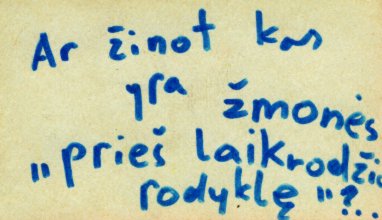 Ar žinot kas
yra žmonės
„prieš laikrodžio
rodyklę"?..